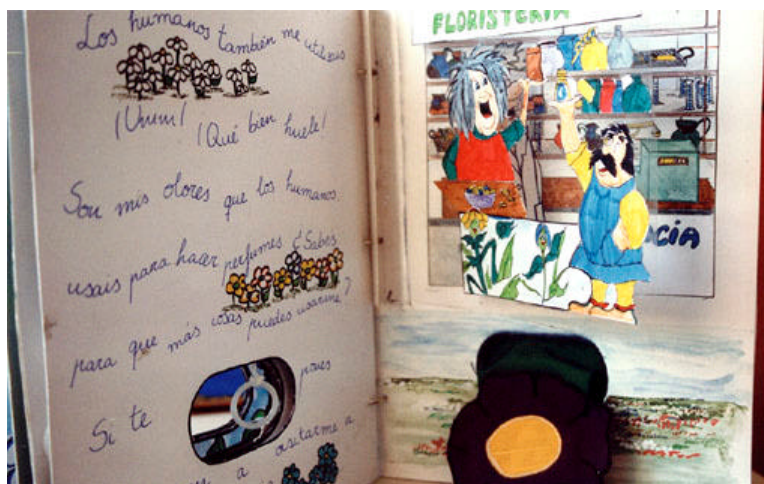 Los humanos también me utilizáis
¡Uum! ¡Qué bien huele!
Son mis olores que los humanos
usais para hacer perfumes ¿Sabes
para que más cosas puedes usarme?
Si te pues
a visitarme a
FLORISTERIA
CIA